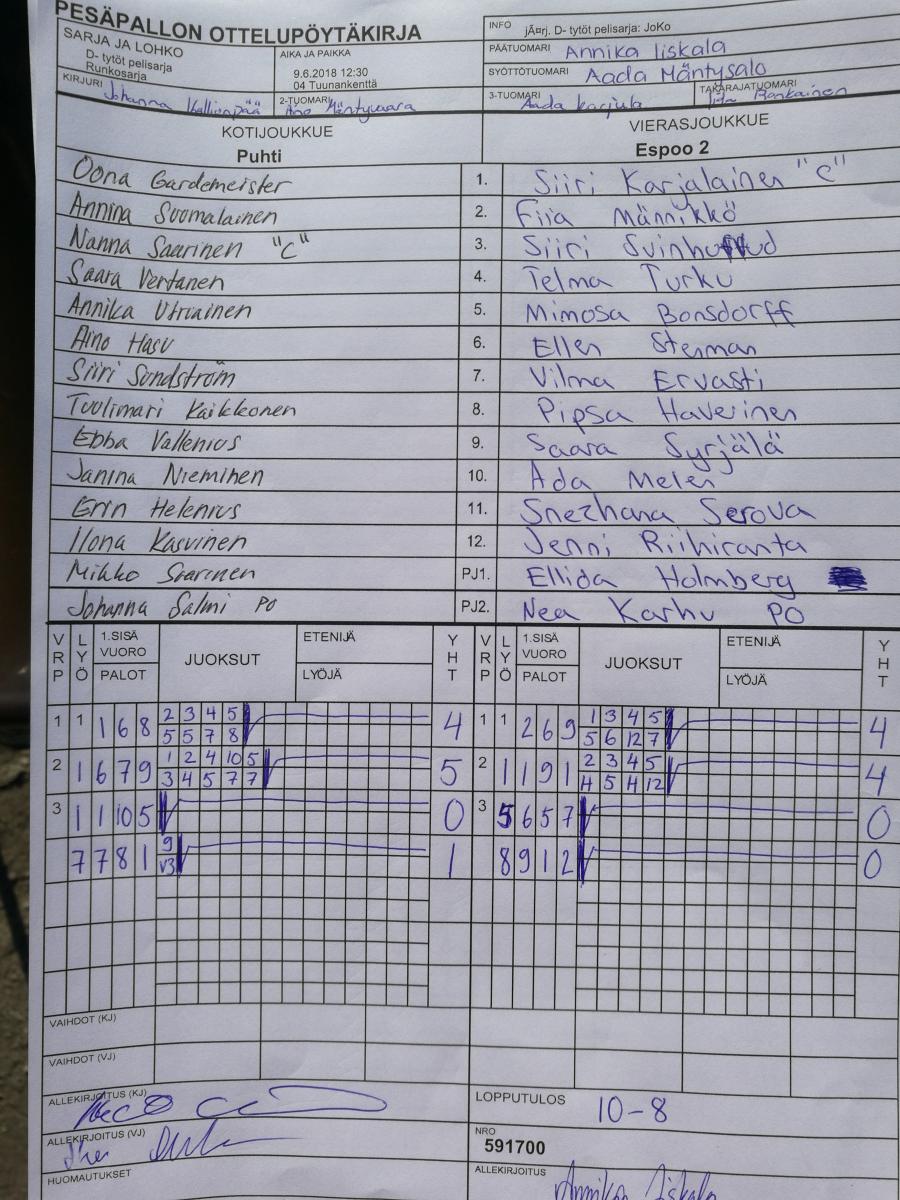 PESÄPALLON OTTELUPÖYTÄKIRJA
SARJA JA LOHKO
D- tytöt pelisarja
Runkosarja
AIKA JA PAIKKA
9.6.2018 12:30
04 Tuunankenttä
KIRJURI Johanna Kallionpää
2-TUOMARI Aino Mäntyvaara
INFO jÃ¤rj. D- tytöt pelisarja: JoKo
PÄÄTUOMARI Annika Iiskala
SYÖTTÖTUOMARI Aada Mäntysalo
3-TUOMARI Aada Karjula
TAKARAJATUOMARI Ronkainen
KOTIJOUKKUE VIERASJOUKKUE
Puhti Espoo 2
Oona Gardemeister 1. Siiri Karjalainen "C"
Annina Suomalainen 2. Fiia Männikkö
Nanna Saarinen "C" 3. Siiri Svinhufvud
Saara Vertanen 4. Telma Turku
Annika Utriainen 5. Mimosa Bonsdorff
Aino Hasu 6. Ellen Stenman
Siiri Sundström 7. Vilma Ervasti
Tuulimari Kaikkonen 8. Pipsa Haverinen
Ebba Vallenius 9. Saara Syrjälä
Janina Nieminen 10. Ada Melen
Erin Helenius 11. Snezhana Serova
Ilona Kasvinen 12. Jenni Riihiranta
Mikko Saarinen PJ1. Ellida Holmberg
Johanna Salmi PO PJ2. Nea Karhu PO
VRP LYÖ 1.SISÄ VUORO PALOT JUOKSUT ETENIJÄ LYÖJÄ YHT VRP LYÖ 1.SISÄ VUORO PALOT JUOKSUT ETENIJÄ LYÖJÄ YHT
2 3 4 5 1 3 4 5
1 1 1 6 8 4 1 1 2 6 9 4
5 5 7 8 5 6 12 7
1 2 4 10 5 2 3 4 5
2 1 6 7 9 5 2 1 1 9 1 4
3 4 5 7 7 4 5 4 12
3 1 1 10 5 0 3 5 6 5 7 0
9
7 7 8 1 1 8 9 1 2 0
V3
VAIHDOT (KJ)
VAIHDOT (VJ)
ALLEKIRJOITUS (KJ)
LOPPUTULOS 10-8
ALLEKIRJOITUS (VJ)
NRO
591700
HUOMAUTUKSET
ALLEKIRJOITUS Annika Iiskala